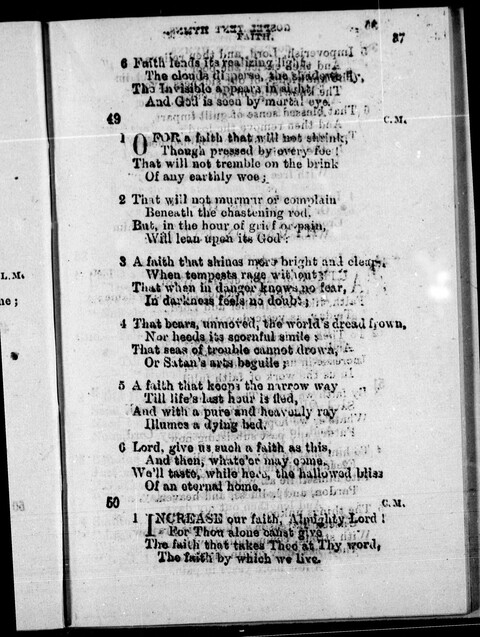 FAITH. 37
6 Faith lends its realizing light,
The clouds disperse, the shadows fly,
The Invisible appears in sight,
And God is seen by mortal eye.
49 C.M.
1 O FOR a faith that will not shrink,
Though pressed by every foe!
That will not tremble on the brink
Of any earthly woe;
2 That will not murmur or complain
Beneath the chastening rod,
But, in the hour of grief or pain,
Will lean upon its God:
3 A faith that shines more bright and clear,
When tempests rage without;
That when in danger knows no fear,
In darkness feels no doubt;
4 That bears, unmoved, the world's dread frown,
Nor heeds its scornful smile;
That seas of trouble cannot drown,
Or Satan's arts beguile;
5 A faith that keeps the narrow way
Till life's last hour is fled,
And with a pure and heavenly ray
Illumes a dying bed.
6 Lord, give us such a faith as this,
And then, whate'er may come,
We'll taste, while here, the hallowed bliss
Of an eternal home.
50 C.M.
1 INCREASE our faith, Almighty Lord!
For Thou alone canst give
The faith that takes Thee at Thy word,
The faith by which we live.
L.M.
me;